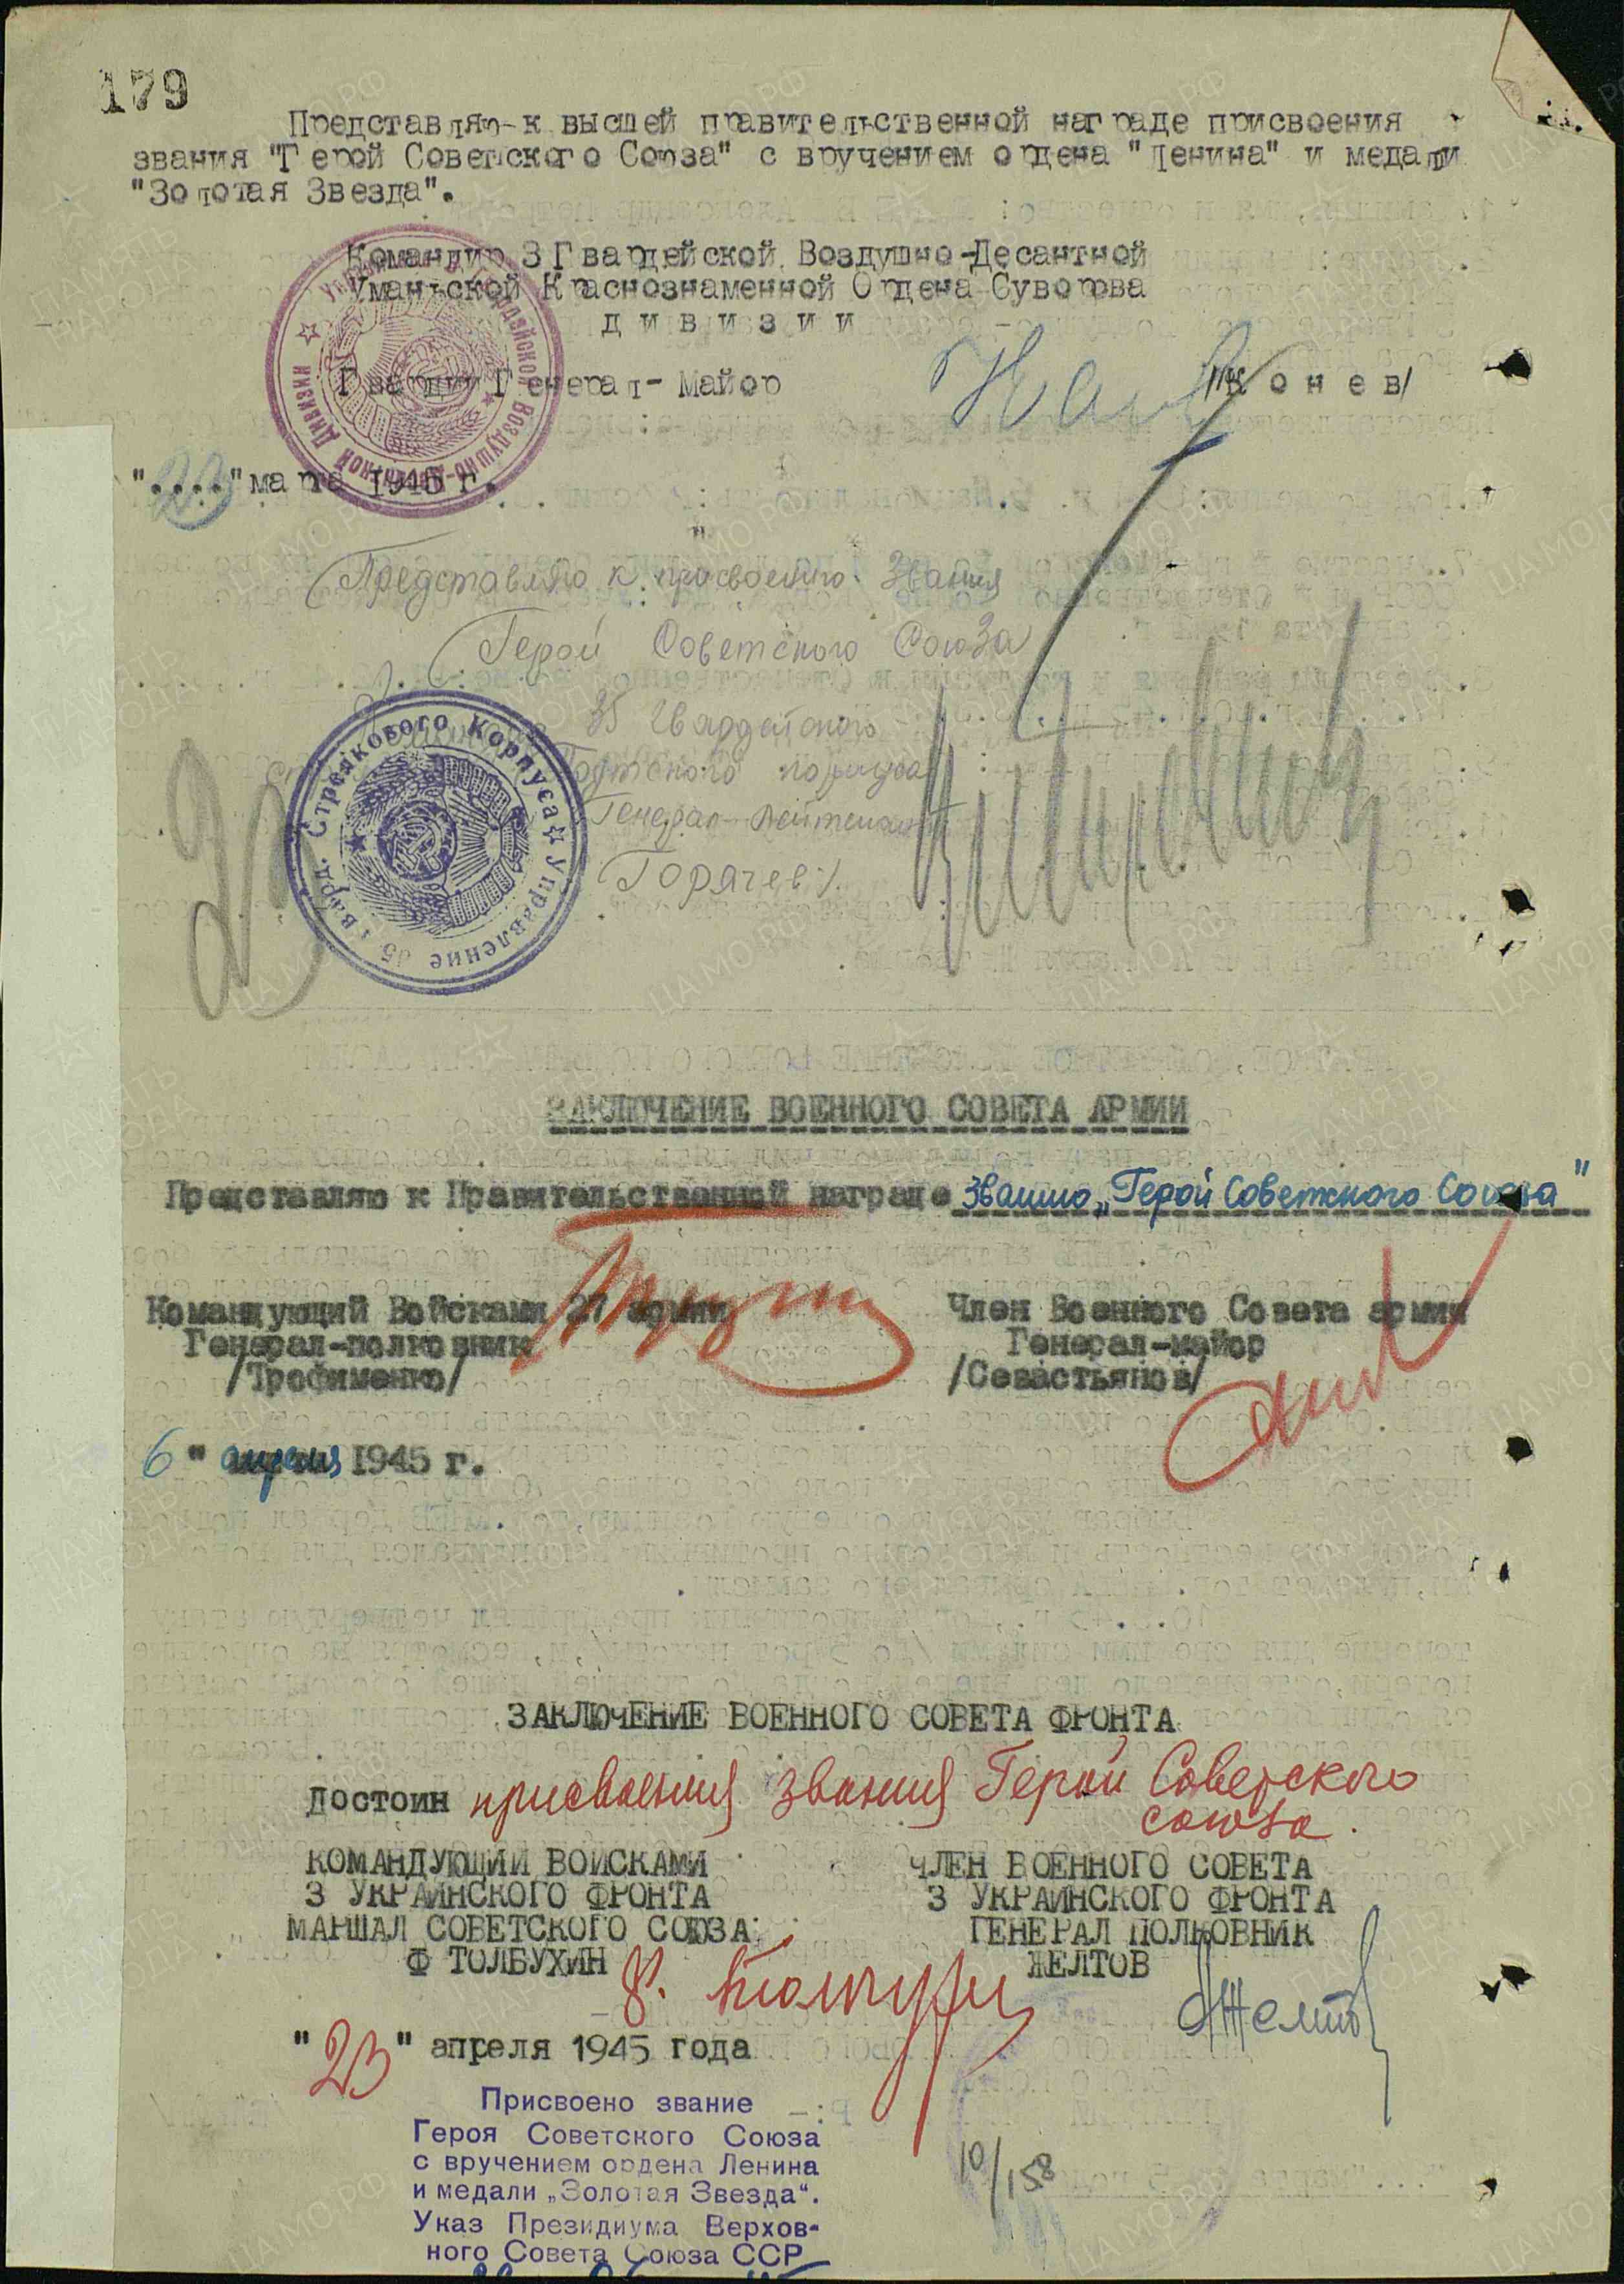 179
Представляю к высшей правительственной награде присвоения
звания "Герой Советского Союза" с вручением ордена "Ленина" и медали
"Золотая Звезда".
Командир 3 Гвардейской Воздушно-Десантной
Уманьской Краснознаменной Ордена Суворова
дивизии
Гвардии Генерал-Майор /Конев/
"23" марта 1945 г.
Представляю к присвоению звания
Герой Советского Союза
35 Гвардейского
корпуса
Генерал-Лейтенант
Горячев/.
Управление 35 Гвард. Стрелкового Корпуса
ЗАКЛЮЧЕНИЕ ВОЕННОГО СОВЕТА АРМИИ
Представляю к Правительственной награде званию „Герой Советского Союза"
Командующий Войсками 27 армии Член Военного Совета армии
Генерал-полковник Генерал-майор
/Трофименко/ /Севастьянов/
6 " апреля 1945 г.
ЗАКЛЮЧЕНИЕ ВОЕННОГО СОВЕТА ФРОНТА
Достоин присвоения звания Герой Советского
союза.
КОМАНДУЮЩИЙ ВОЙСКАМИ ЧЛЕН ВОЕННОГО СОВЕТА
3 УКРАИНСКОГО ФРОНТА 3 УКРАИНСКОГО ФРОНТА
МАРШАЛ СОВЕТСКОГО СОЮЗА ГЕНЕРАЛ ПОЛКОВНИК
Ф ТОЛБУХИН ЖЕЛТОВ
"23" апреля 1945 года
Присвоено звание
Героя Советского Союза
с вручением ордена Ленина
и медали „Золотая Звезда".
Указ Президиума Верхов-
ного Совета Союза ССР
10/158